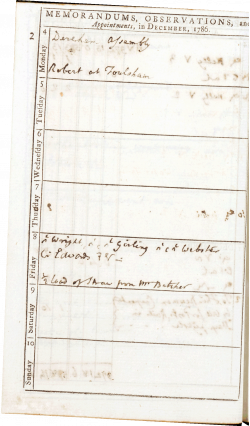 MEMORANDUMS, OBSERVATIONS, AND
Appointments, in DECEMBER, 1786.
2
4 Monday
Dereham Assembly
Robert at Foulsham
5 Tuesday
6 Wednesday
7 Thursday
8 Friday
Wright Girling Webster
Edwards
load of Straw from Mr Butcher
9 Saturday
10 Sunday